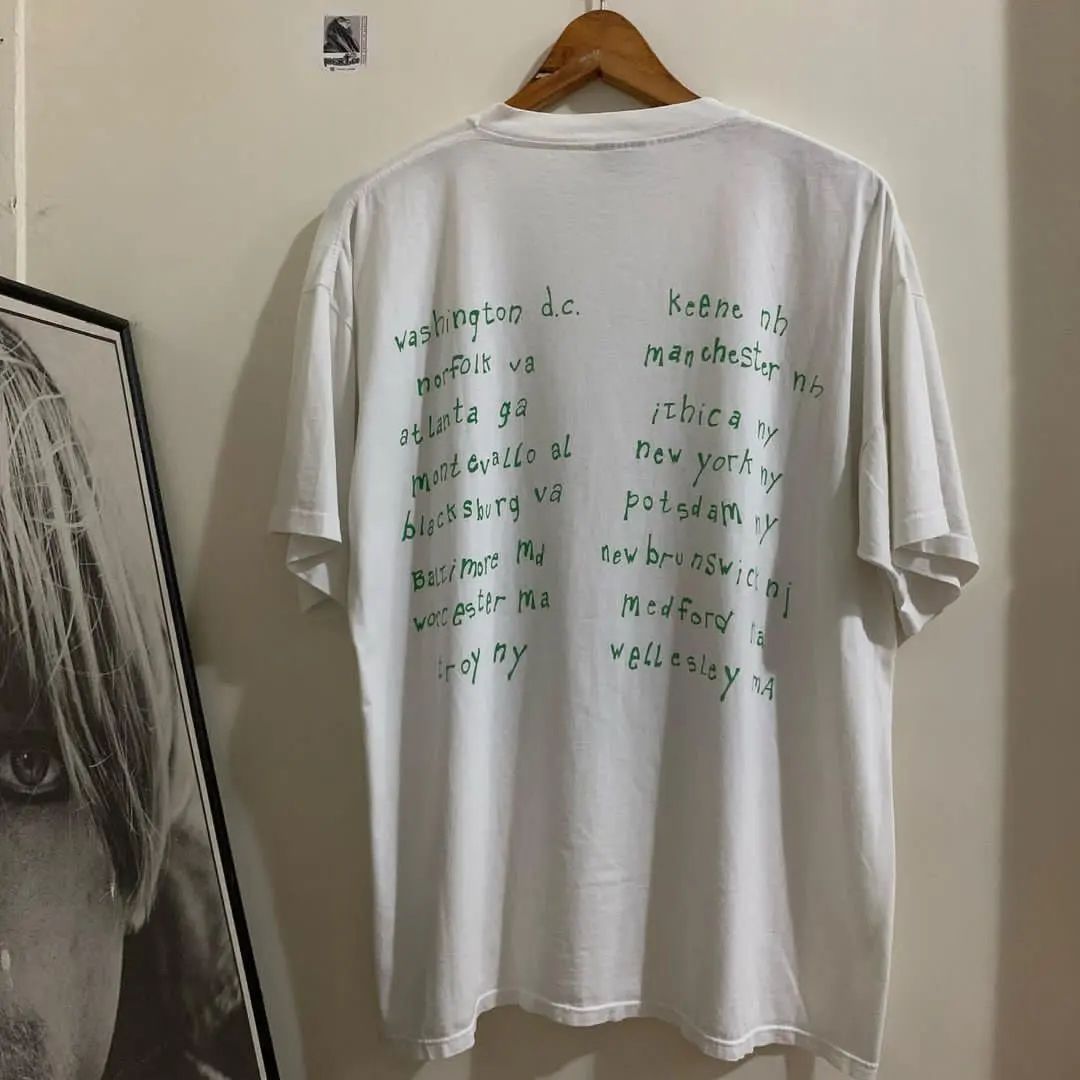 washington d.c.
norfolk va
atlanta ga
montevallo al
blacksburg va
Baltimore Md
worcester ma
troy ny
keene nh
manchester nh
ithica ny
new york ny
potsdam ny
new brunswick nj
medford
wellesley mA